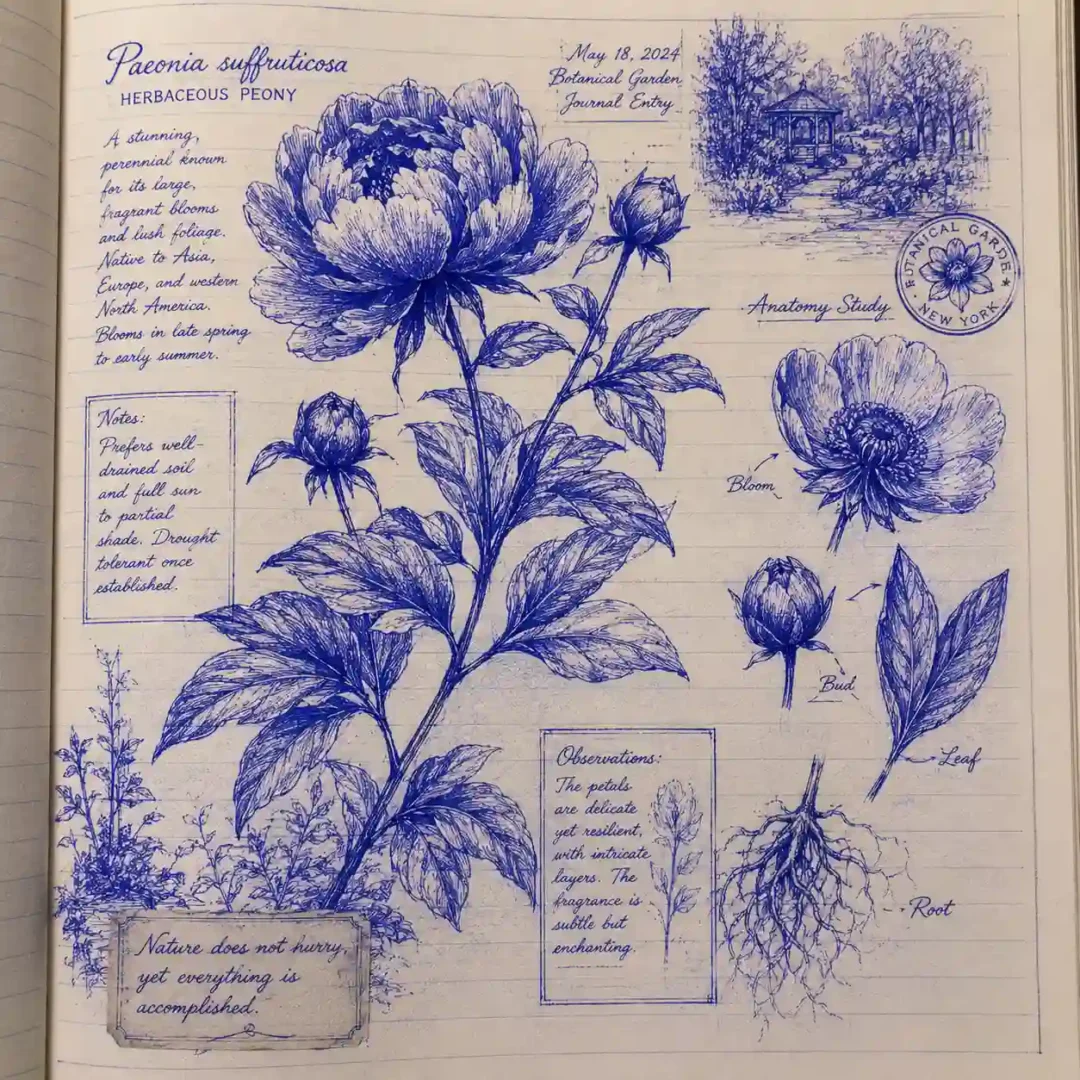 Paeonia suffruticosa
HERBACEOUS PEONY
A stunning,
perennial known
for its large,
fragrant blooms
and lush foliage.
Native to Asia,
Europe, and western
North America.
Blooms in late spring
to early summer.
May 18, 2024
Botanical Garden
Journal Entry
BOTANICAL GARDE
NEW YORK
Anatomy Study
Notes:
Prefers well-
drained soil
and full sun
to partial
shade. Drought
tolerant once
established.
Bloom
Bud
Leaf
Root
Observations:
The petals
are delicate
yet resilient,
with intricate
layers. The
fragrance is
subtle but
enchanting.
Nature does not hurry,
yet everything is
accomplished.